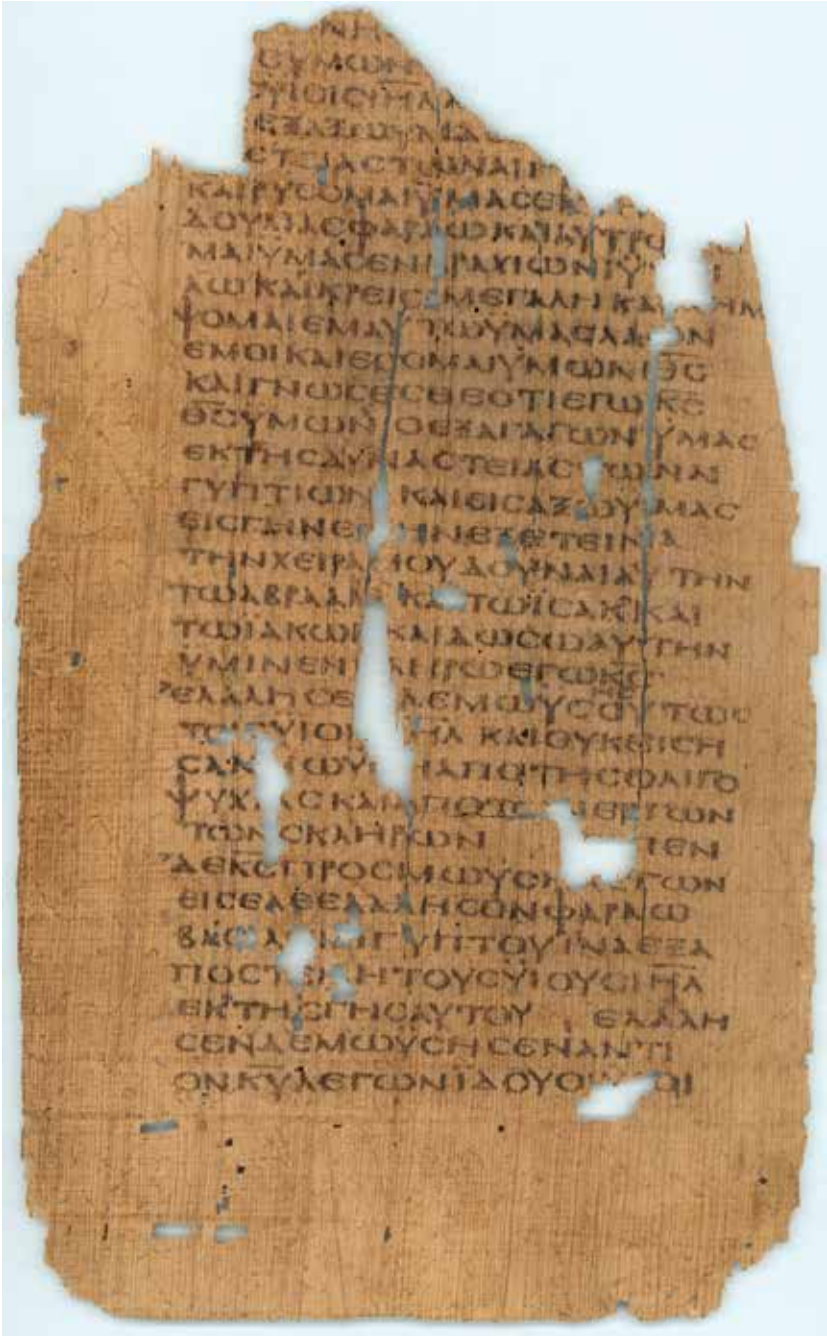 ΝΗ
ΘΥΜΩΝ
ΥΙΟΙϹΙΗ̅Λ̅
ΕΞΑΞΩΥΜΑϹ
ϹΤΕΙΑϹΤΩΝΑΙΓ
ΚΑΙΡΥϹΟΜΑΙΥΜΑϹΕΚ
ΔΟΥΛΙΑϹΦΑΡΑΩΚΑΙΛΥΤΡΟ
ΜΑΙΥΜΑϹΕΝΒΡΑΧΙΩΝΙΫΨ
ΛΩΚΑΙΚΡΕΙϹΙΜΕΓΑΛΗΚΑΙΛΗΜ
ΨΟΜΑΙΕΜΑΥΤΩΥΜΑϹΛΑΟΝ
ΕΜΟΙΚΑΙΕϹΟΜΑΙΥΜΩΝΘ̅Ϲ̅
ΚΑΙΓΝΩϹΕϹΘΕΟΤΙΕΓΩΚ̅Ϲ̅
Θ̅Ϲ̅ΥΜΩΝΟΕΞΑΓΑΓΩΝΫΜΑϹ
ΕΚΤΗϹΔΥΝΑϹΤΕΙΑϹΤΩΝΑΙ
ΓΥΠΤΙΩΝ ΚΑΙΕΙϹΑΞΩΥΜΑϹ
ΕΙϹΓΗΝΕΙϹΗΝΕΞΕΤΕΙΝΑ
ΤΗΝΧΕΙΡΑΜΟΥΔΟΥΝΑΙΑΥΤΗΝ
ΤΩΑΒΡΑΑΜΚΑΙΤΩΪϹΑΚΚΑΙ
ΤΩΙΑΚΩΒΚΑΙΔΩϹΩΑΥΤΗΝ
ΥΜΙΝΕΝΚΛΗΡΩΕΓΩΚ̅Ϲ̅
ΕΛΑΛΗϹΕΔΕΜΩΥϹΗϹΟΥΤΩϹ
ΤΟΙϹΥΙΟΙϹΙΗ̅Λ̅ ΚΑΙΟΥΚΕΙϹΗ
ϹΑΝΜΩΥϹΗΑΠΟΤΗϹΟΛΙΓΟ
ΨΥΧΙΑϹΚΑΙΑΠΟΤΩΝΕΡΓΩΝ
ΤΩΝϹΚΛΗΡΩΝ ΙΠΕΝ
ΔΕΚ̅Ϲ̅ΠΡΟϹΜΩΥϹΗΛΕΓΩΝ
ΕΙϹΕΛΘΕΛΑΛΗϹΟΝΦΑΡΑΩ
ΒΑϹΙΛΕΙΑΙΓΥΠΤΟΥΙΝΑΕΞΑ
ΠΟϹΤΕΙΛΗΤΟΥϹΥΙΟΥϹΙΗ̅Λ̅
ΕΚΤΗϹΓΗϹΑΥΤΟΥ ΕΛΑΛΗ
ϹΕΝΔΕΜΩΥϹΗϹΕΝΑΝΤΙ
ΟΝΚ̅Υ̅ΛΕΓΩΝΪΔΟΥΟΙΥΙΟΙ